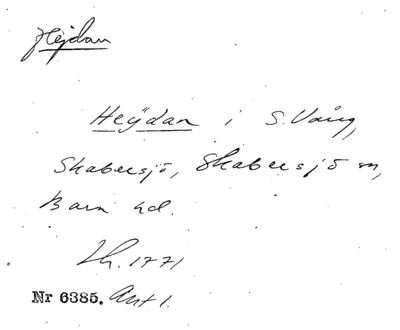 Hejdan
Heÿdan i S. Vång,
Skabersjö, Skabersjö sn,
Bara hd.
Lh. 1771
Nr 6385. Akt 1.